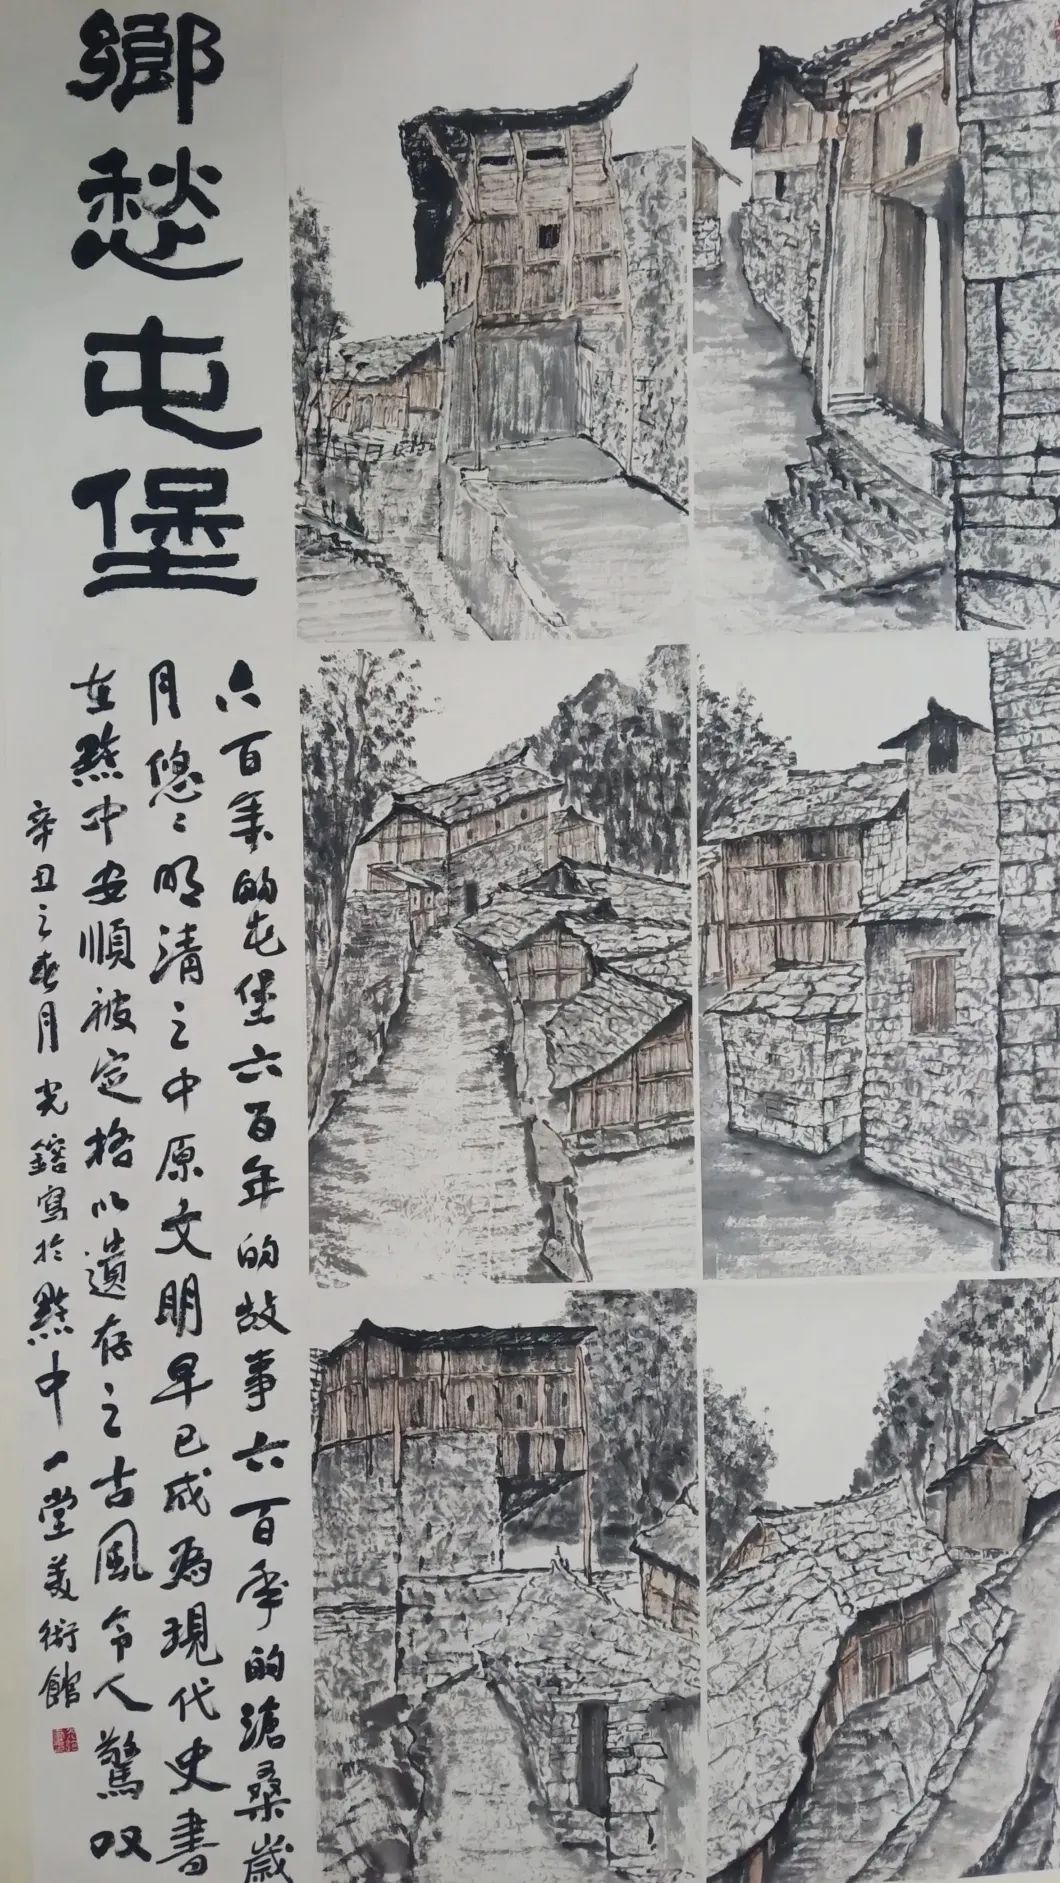 鄉愁屯堡
六百年的屯堡六百年的故事六百年的滄桑歲
月悠々明清之中原文明早已成為現代史書
在黔中安順被定格以遺存之古風令人驚叹
辛丑之春月光鎔寫於黔中一堂美術館